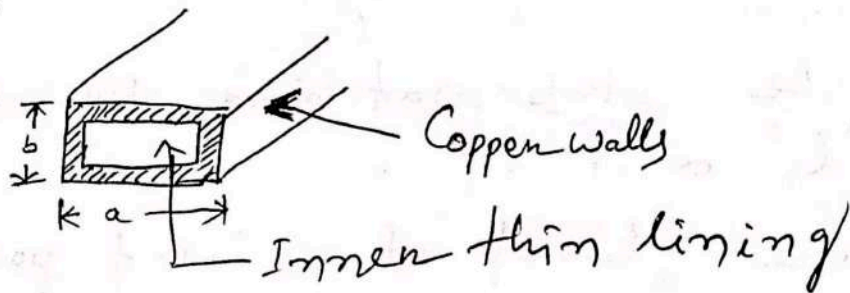 b
Copper walls
a
Inner thin lining